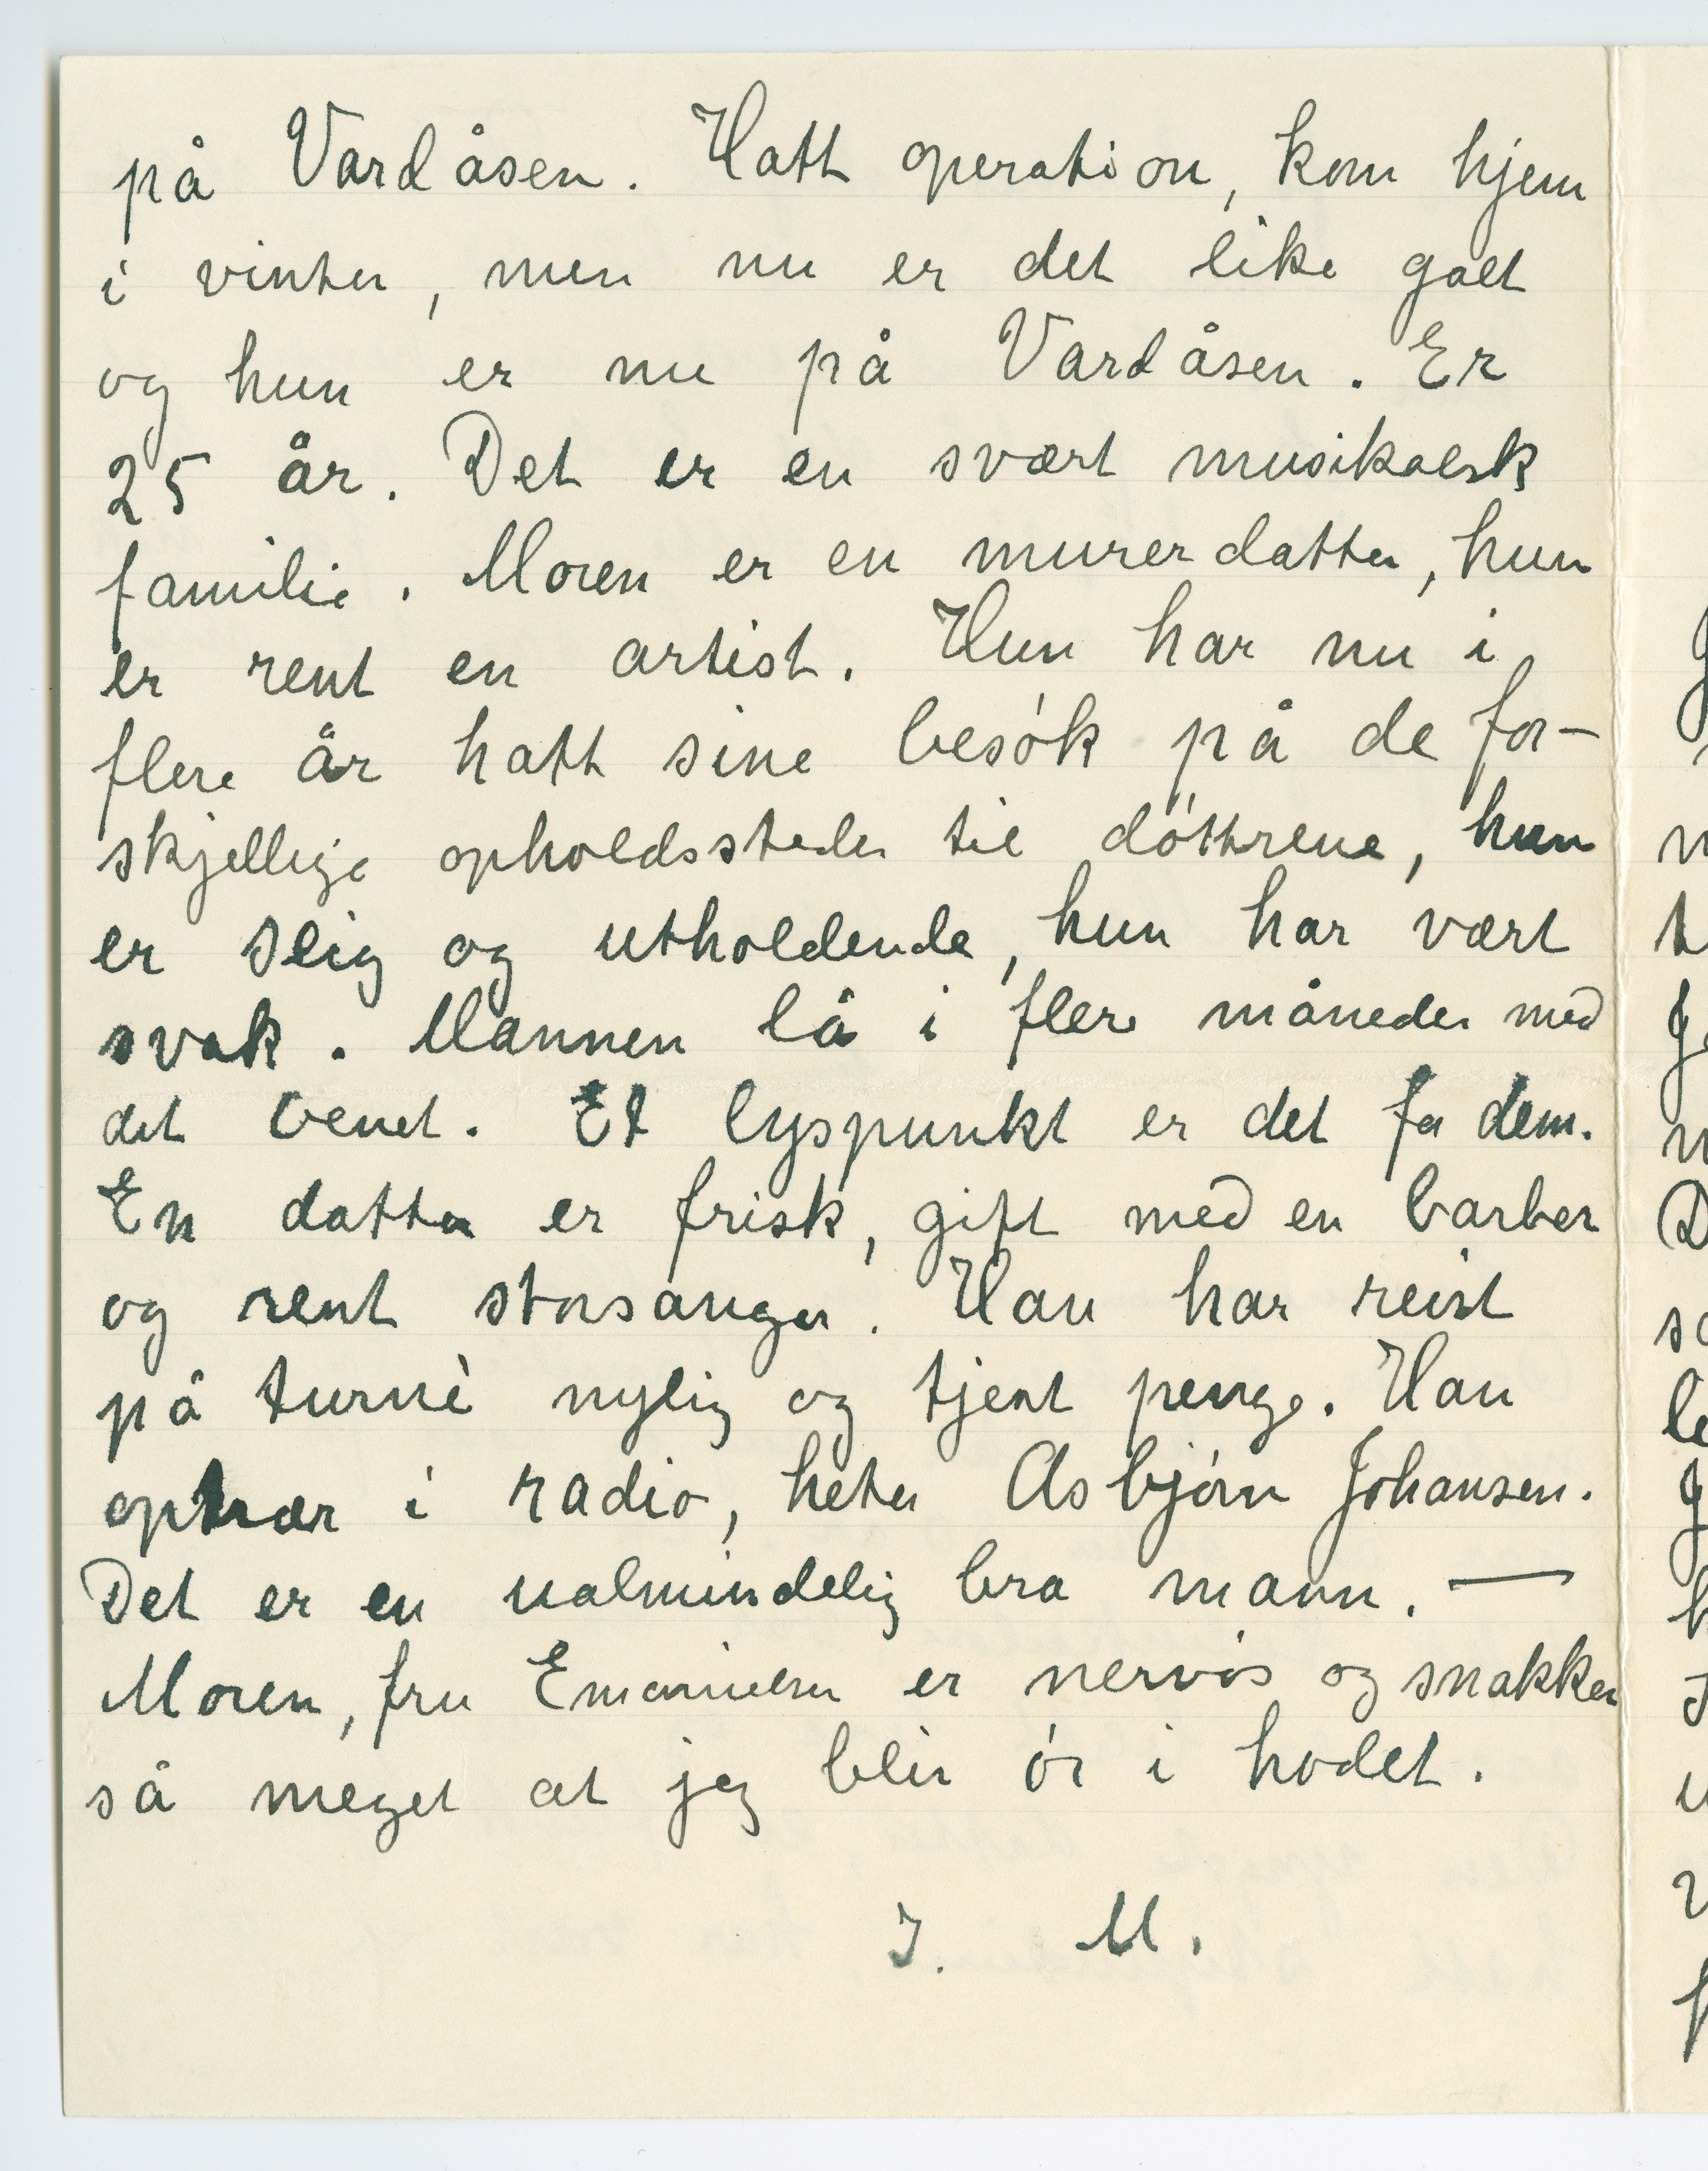 på Vardåsen. Hatt operation, kom hjem
i vinter, men nu er det like galt
og hun er nu på Vardåsen. Er
25 år. Det er en svært musikalsk
familie. Moren er en murerdatter, hun
er rent en artist. Hun har nu i
flere år hatt sine besók på de for-
skjellige opholdssteder til dóttrene, hun
er seig og utholdende, hun har vært
svak. Mannen lå i flere måneder med
det benet. Et lyspunkt er det for dem.
En datter er frisk, gift med en barber
og rent storsanger. Han har reist
på turnè nylig og tjent penge. Han
optrær i radio, heter Asbjórn Johansen.
Det er en ualmindelig bra mann. —
Moren, fru Emanuelsen er nervós og snakker
så meget at jeg blir ór i hodet.
I. M.